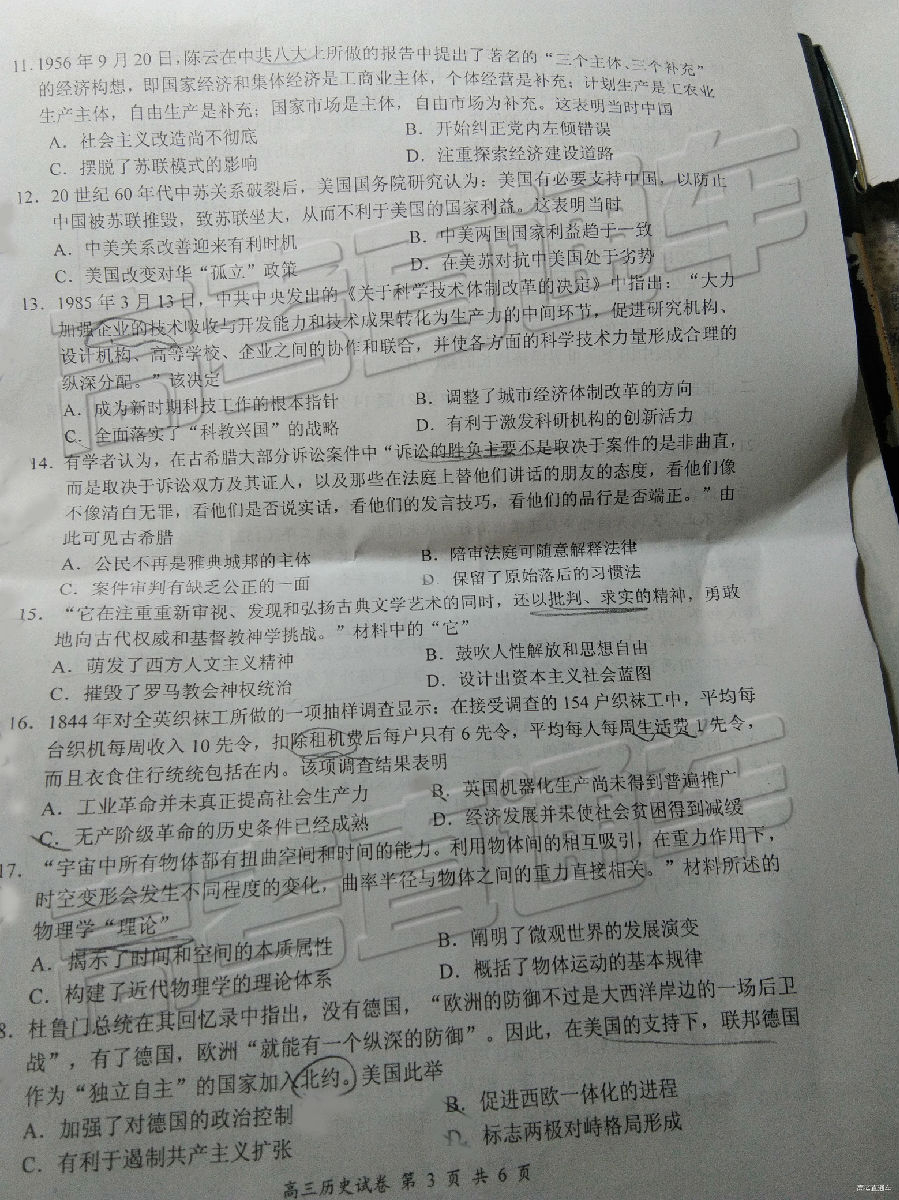 11. 1956 年 9 月 20 日，陈云在中共八大上所做的报告中提出了著名的“三个主体、三个补充”
的经济构想，即国家经济和集体经济是工商业主体，个体经营是补充；计划生产是工农业
生产主体，自由生产是补充；国家市场是主体，自由市场为补充。这表明当时中国
A．社会主义改造尚不彻底 B．开始纠正党内左倾错误
C．摆脱了苏联模式的影响 D．注重探索经济建设道路
12．20 世纪 60 年代中苏关系破裂后，美国国务院研究认为：美国有必要支持中国，以防止
中国被苏联推毁，致苏联坐大，从而不利于美国的国家利益。这表明当时
A．中美关系改善迎来有利时机 B．中美两国国家利益趋于一致
C．美国改变对华“孤立”政策 D．在美苏对抗中美国处于劣势
13．1985 年 3 月 13 日，中共中央发出的《关于科学技术体制改革的决定》中指出：“大力
加强企业的技术吸收与开发能力和技术成果转化为生产力的中间环节，促进研究机构、
设计机构、高等学校、企业之间的协作和联合，并使各方面的科学技术力量形成合理的
纵深分配。”该决定
A．成为新时期科技工作的根本指针 B．调整了城市经济体制改革的方向
C．全面落实了“科教兴国”的战略 D．有利于激发科研机构的创新活力
14．有学者认为，在古希腊大部分诉讼案件中“诉讼的胜负主要不是取决于案件的是非曲直，
而是取决于诉讼双方及其证人，以及那些在法庭上替他们讲话的朋友的态度，看他们像
不像清白无罪，看他们是否说实话，看他们的发言技巧，看他们的品行是否端正。”由
此可见古希腊
A．公民不再是雅典城邦的主体 B．陪审法庭可随意解释法律
C．案件审判有缺乏公正的一面 D．保留了原始落后的习惯法
15．“它在注重重新审视、发现和弘扬古典文学艺术的同时，还以批判、求实的精神，勇敢
地向古代权威和基督教神学挑战。”材料中的“它”
A．萌发了西方人文主义精神 B．鼓吹人性解放和思想自由
C．摧毁了罗马教会神权统治 D．设计出资本主义社会蓝图
16．1844 年对全英织袜工所做的一项抽样调查显示：在接受调查的 154 户织袜工中，平均每
台织机每周收入 10 先令，扣除租机费后每户只有 6 先令，平均每人每周生活费 1 先令，
而且衣食住行统统包括在内。该项调查结果表明
A．工业革命并未真正提高社会生产力 B．英国机器化生产尚未得到普遍推广
C．无产阶级革命的历史条件已经成熟 D．经济发展并未使社会贫困得到减缓
17．“宇宙中所有物体都有扭曲空间和时间的能力。利用物体间的相互吸引，在重力作用下，
时空变形会发生不同程度的变化，曲率半径与物体之间的重力直接相关。”材料所述的
物理学“理论”
A．揭示了时间和空间的本质属性 B．阐明了微观世界的发展演变
C．构建了近代物理学的理论体系 D．概括了物体运动的基本规律
8．杜鲁门总统在其回忆录中指出，没有德国，“欧洲的防御不过是大西洋岸边的一场后卫
战”，有了德国，欧洲“就能有一个纵深的防御”。因此，在美国的支持下，联邦德国
作为“独立自主”的国家加入北约。美国此举
A．加强了对德国的政治控制 B．促进西欧一体化的进程
C．有利于遏制共产主义扩张 D．标志两极对峙格局形成
高三历史试卷 第 3 页 共 6 页
高考直通车
高考直通车
高考直通车